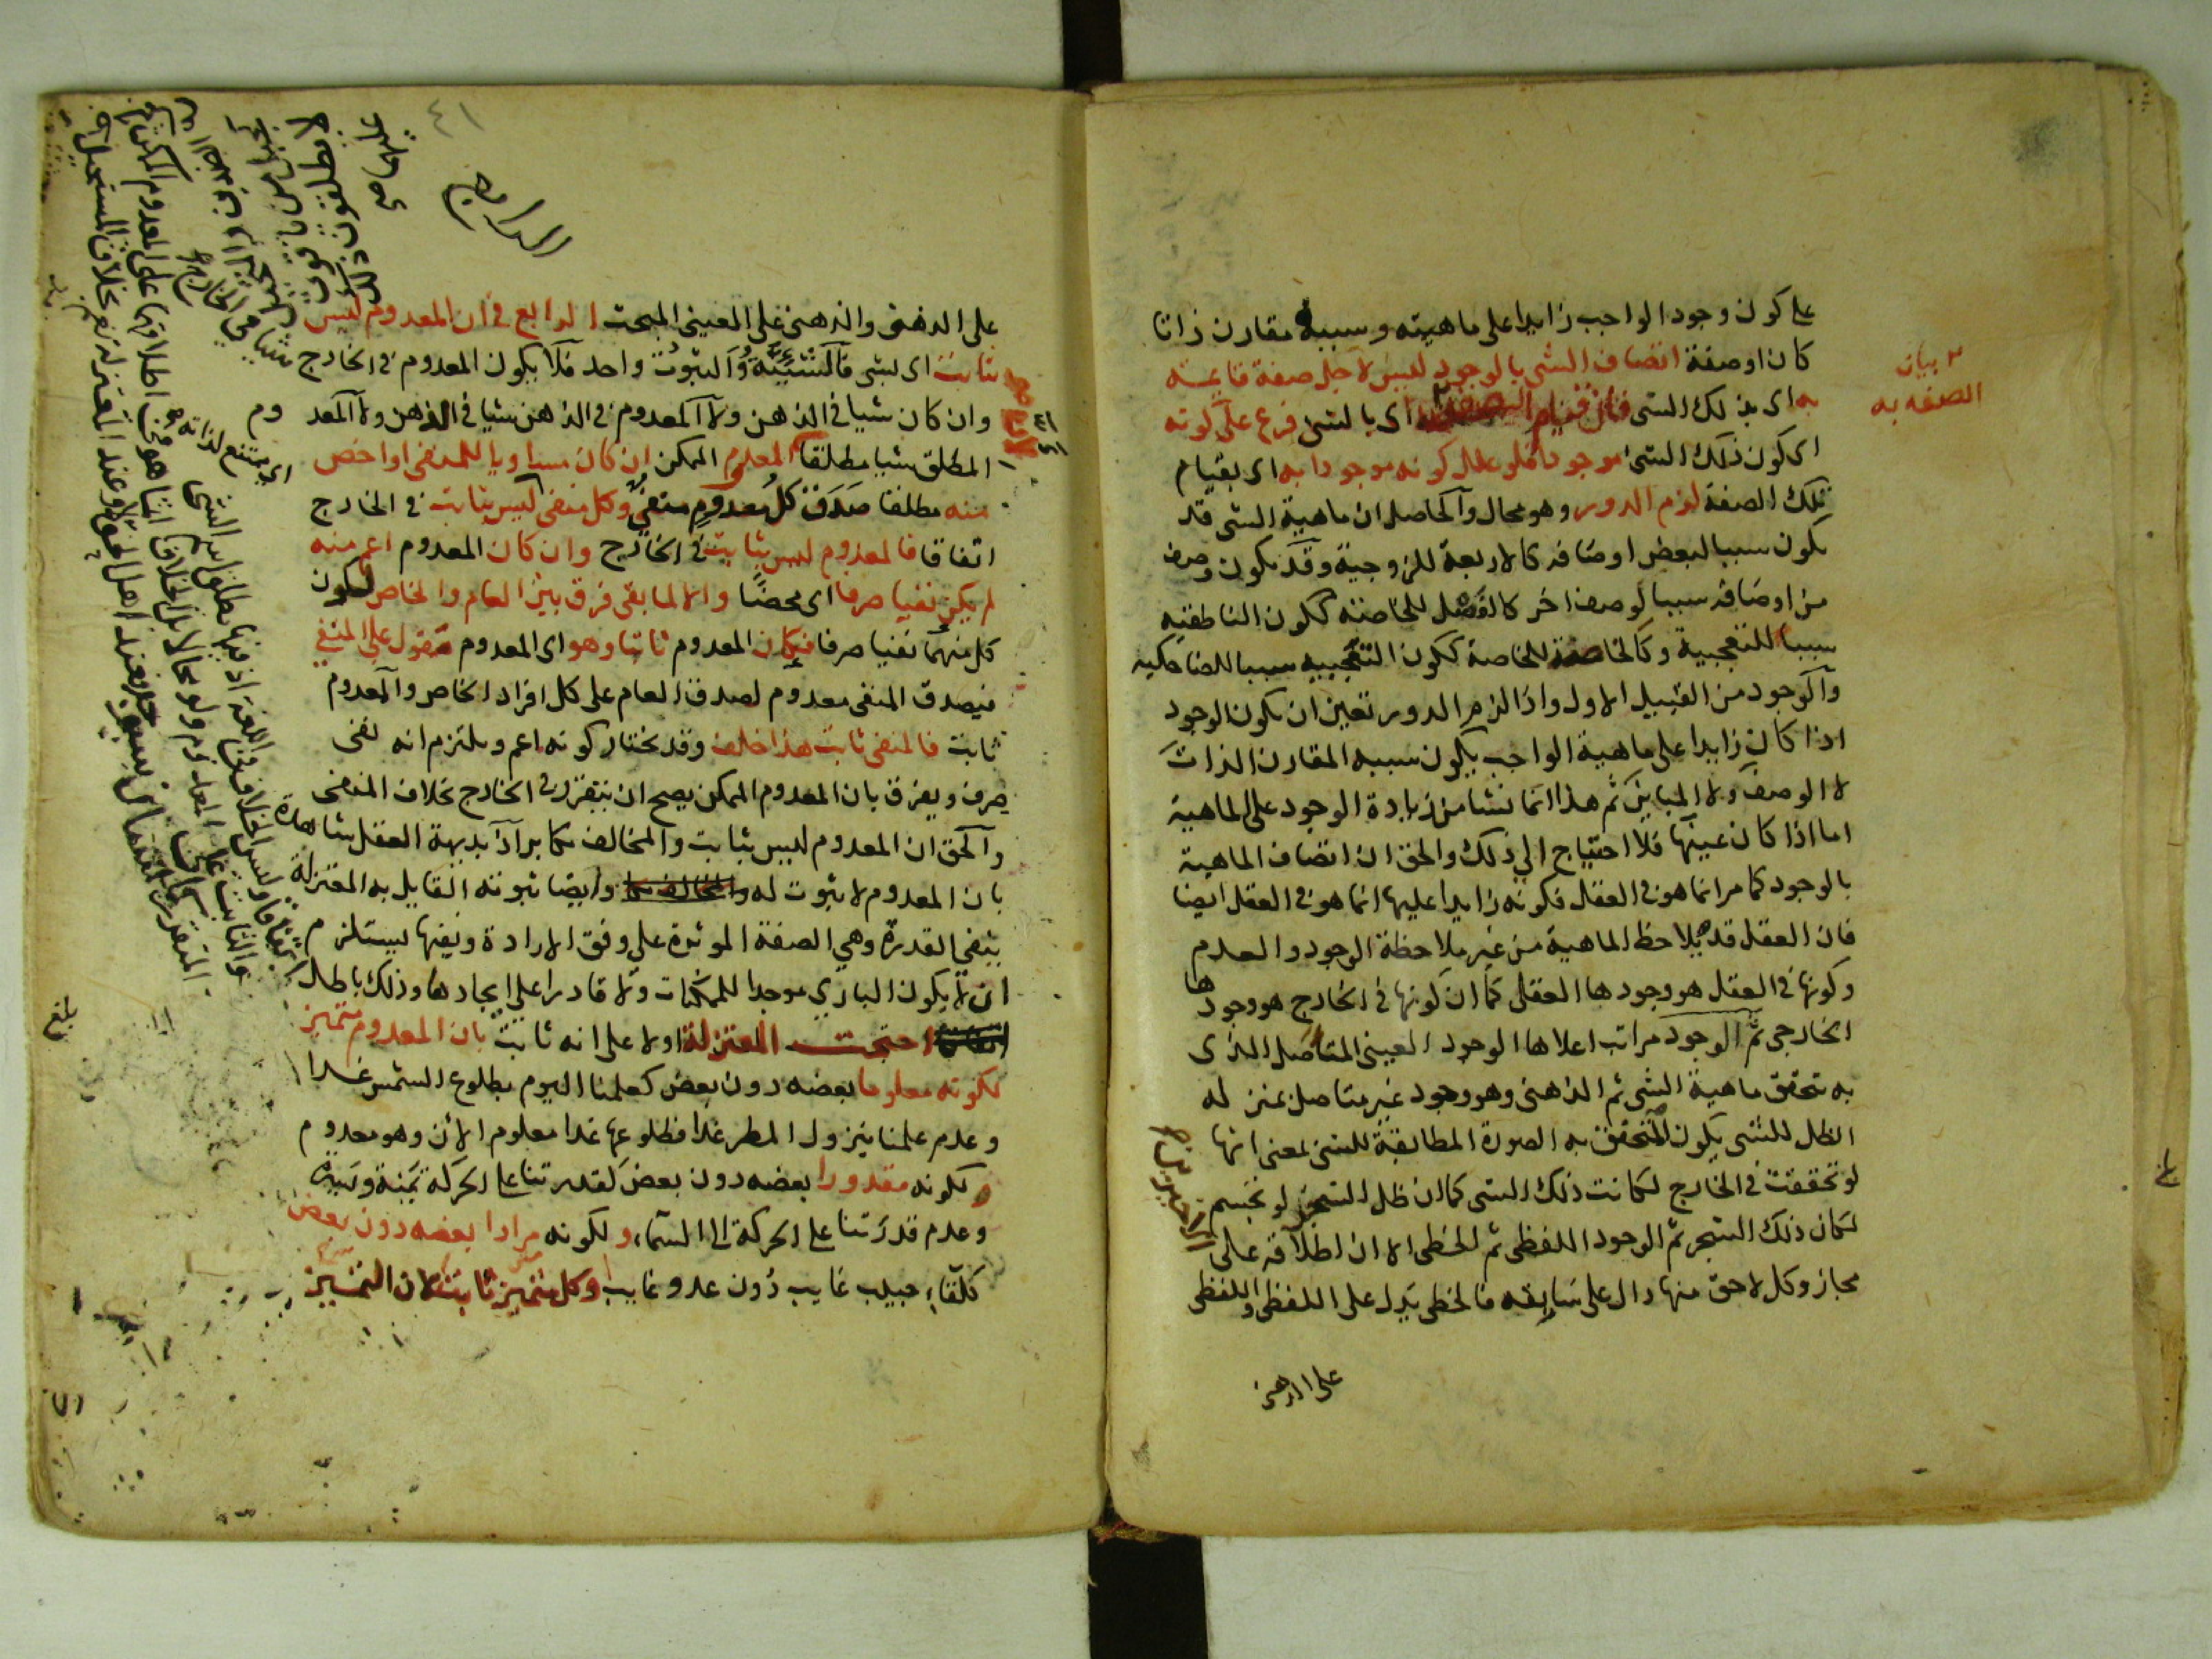 على كون وجود الواجب زايدا على ماهيته وسببه مقارن ذاتا
كان او صفة اتصاف الشى بالوجود ليس لاجل صفة قايمة
به اى بذلك الشى فان قيام الصفة به اى بالشى فرع على كونه
اى كون ذلك الشى موجودا فلو علل كونه موجودا به اى بقيام
تلك الصفة لزم الدور وهو محال والحاصل ان ماهية الشى قد
يكون سببا لبعض اوصافه كالاربعة للزوجية وقد يكون وصف
من اوصافه سببا لوصف اخر كالفصل للخاصة ككون الناطقيه
سببا للتعجبية وكالخاصة للخاصة ككون التعجبيه سببا للضاحكيه
والوجود من القبيل الاول واذا لزم الدور تعين ان يكون الوجود
اذا كان زايدا على ماهية الواجب يكون سببه المقارن الذات
لا الوصف ولا المباين ثم هذا انما نشا من زيادة الوجود على الماهية
اما اذا كان عينها فلا احتياج الى ذلك والحق ان اتصاف الماهية
بالوجود كما مر انما هو فى العقل فكونه زايدا عليها انما هو فى العقل ايضا
فان العقل قد يلاحظ الماهية من غير ملاحظة الوجود والعدم
وكونها فى العقل هو وجودها العقلى كما ان كونها فى الخارج هو وجودها
الخارجى ثم الوجود مراتب اعلاها الوجود العينى المتاصل الذى
به تحقق ماهية الشى ثم الذهنى وهو وجود غير متاصل بمنزله
الظل للشى يكون المتحقق به الصورة المطابقة للشى بمعنى انها
لو تحققت فى الخارج لكانت ذلك الشى كما ان ظل الشجر لو تجسم
لكان ذلك الشجر ثم الوجود اللفظى ثم الخطى الا ان اطلاقه على
مجاز وكل لاحق منها دال على سابقه فالخطى يدل على اللفظى واللفظى
على الذهنى
بيان
الصفه به
الاخيرين
٤١
الرابع
على الذهنى والذهنى على العينى المبحث الرابع فى ان المعدوم ليس
بثابت اى بشى فالشيئية والثبوت واحد فلا يكون المعدوم فى الخارج
وان كان شيا فى الذهن ولا المعدوم فى الذهن شيا فى الذهن ولا المعدوم
المطلق شيا مطلقا المعدوم الممكن ان كان مساويا للمنفى او اخص
منه مطلقا صدق كل معدوم منفى وكل منفى ليس بثابت فى الخارج
اتفاقا فالمعدوم ليس بثابت فى الخارج وان كان المعدوم اعم منه
لم يكن نفيا صرفا اى محضا والا لما بقى فرق بين العام والخاص لكون
كل منهما نفيا صرفا فيكان المعدوم ثابتا وهو اى المعدوم مقول على المنفى
فيصدق المنفى معدوم لصدق العام على كل افراد الخاص والمعدوم
ثابت فالمنفى ثابت هذا خلف وقد يختار كونه اعم ويلتزم انه نفى
صرف ويفرق بان المعدوم الممكن يصح ان يتقرر فى الخارج بخلاف المنفى
والحق ان المعدوم ليس بثابت والمخالف مكابر اذ بديهة العقل شاهدة
بان المعدوم لا ثبوت له وايضا ثبوته القايل به المعتزلة
ينفى القدرة وهي الصفة الموثرة على وفق الارادة ونفيها يستلزم
ان لا يكون البارى موجدا للممكنات ولا قادرا على ايجادها وذلك باطل
احتجت المعتزلة اولا على انه ثابت بان المعدوم متميز
لكونه معلوما بعضه دون بعض كعلمنا اليوم بطلوع الشمس غدا
وعدم علمنا بنزول المطر غدا فطلوعها غدا معلوم الان وهو معدوم
ولكونه مقدورا بعضه دون بعض كقدرتنا على الحركة يمنة ويسرة
وعدم قدرتنا على الحركة الى السماء ولكونه مرادا بعضه دون بعض
كلقاء حبيب غايب دون عدو غايب وكل متميز ثابت لان التميز
بلغ